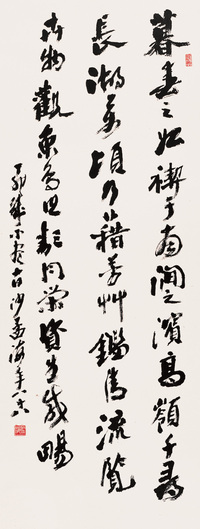 暮春之始禊于南澗之濱高嶺千尋
長湖萬頃乃藉芳艸鑑清流覽
卉物觀魚鳥具類同榮資生咸暢